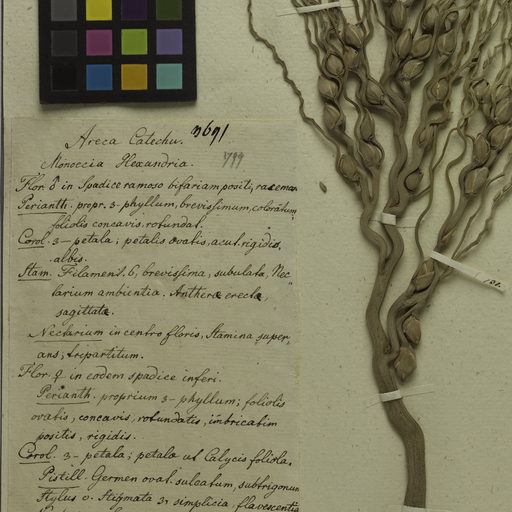 Areca Catechu. 3691
Monoecia Hexandria. 799
Flor. ♂ in Spadice ramoso bifariam positi, racemar
Perianth. propr. 3-phyllum, brevissimum, coloratum,
foliolis concavis, rotundat.
Corol. 3-petala; petalis ovatis, acut. rigidis,
albis.
Stam. Filament. 6, brevissima, subulata, Nec-
tarium ambientia. Antheræ erectæ,
sagittatæ.
Nectarium in centro floris, Stamina super-
ans; tripartitum.
Flor. ♀ in eodem spadice inferi.
Perianth. proprium 3-phyllum; foliolis
ovatis, concavis, rotundatis, imbricatim
positis, rigidis.
Corol. 3-petala; petala ut Calycis foliola.
Pistill. Germen oval. sulcatum, subtrigonum
Stylus o. Stigmata 3, simplicia, flavescentia